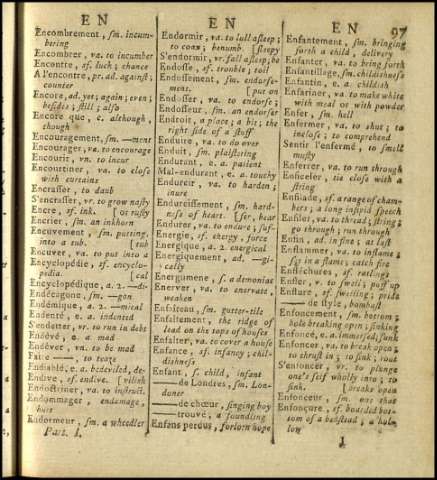 EN
EN
EN
97
Encombrement, sm. incum-
bering
Encombrer, va. to incumber
Encontre, sf. luck; chance
A l'encontre, pr. ad. against;
counter
Encore, ad. yet; again; even;
besides; still; also
Encore que, c. although,
though
Encouragement, sm. —ment
Encourager, va. to encourage
Encourir, vn. to incur
Encourtiner, va. to close
with curtains
Encrasser, to daub
S'encrasser, vr. to grow nasty
Encre, sf. ink. [or rusty
Encrier, sm. an inkhorn
Encuvement, sm. putting.
into a tub. [tub
Encuver, va. to put into a
Encyclopédie, sf. encyclo-
pedia. [cal
Encyclopédique, a. 2. —di-
Endécagone, sm. —gon
Endémique, a. 2. —mical
Endenté, e. a. indented
S'endetter, vr. to run in debt
Endêvé, e. a. mad
Endêver, vn. to be mad
Faire —, to teaze
Endiablé, e. a. bedeviled, de-
Endive, sf. endive. [vilish
Endoctriner, va. to instruct.
Endommager, endamage,
hurt
Endormeur, sm. a wheedler
Part. I.
Endormir, va. to lull asleep;
to coax; benumb. [sleepy
S'endormir, vr. fall asleep, be
Endosse, sf. trouble; toil
Endossement, sm. endorse-
ment. [put on
Endosser, va. to endorse;
Endosseur, sm. an endorser
Endroit, a place; a bit; the
right side of a stuff
Enduire, va. to do over
Enduit, sm. plaistering
Endurant, e. a. patient
Mal-endurant, e. a. touchy
Endurcir, va. to harden;
inure
Endurcissement, sm. hard-
ness of heart. [fer, bear
Endurer, va. to endure; suf-
Energie, sf. energy, force
Energique, a. 2 energical
Energiquement, ad. —gi-
cally
Energumene, s. a demoniac
Enerver, va. to enervate,
weaken
Enfaiteau, sm. gutter-tile
Enfaitement, the ridge of
lead on the tops of houses
Enfaîter, va. to cover a house
Enfance, sf. infancy; chil-
dishness
Enfant, s. child, infant
— de Londres, sm. Lon-
doner
— de chœur, singing boy
— trouvé, a foundling
Enfans perdus, forlorn hope
Enfantement, sm. bringing
forth a child, delivery
Enfanter, va. to bring forth
Enfantillage, sm. childishness
Enfantin, e. a. childish
Enfariner, va. to make white
with meal or with powder
Enfer, sm. hell
Enfermer, va. to shut; to
inclose; to comprehend
Sentir l'enfermé, to smell
musty
Enferrer, va. to run through
Enficeler, tie close with a
string
Enfilade, sf. a range of cham-
bers; a long insipid speech
Enfiler, va. to thread; string;
go through; run through
Enfin, ad. in fine; at last
Enflammer, va. to inflame;
set in a flame; catch fire
Enfléchures, sf. ratlings
Enfler, v. to swell; puff up
Enflure, sf. swelling; pride
— de style, bombast
Enfoncement, sm. bottom;
hole breaking open; sinking
Enfoncé, e. a. immersed, sunk
Enfoncer, va. to break open;
to thrust in; to sink; rout
S'enfoncer, vr. to plunge
one's self wholly into; to
sink. [breaks open
Enfonceur, sm. one that
Enfonçure, sf. boards bot-
tom of a bedstead; a hol-
low
I